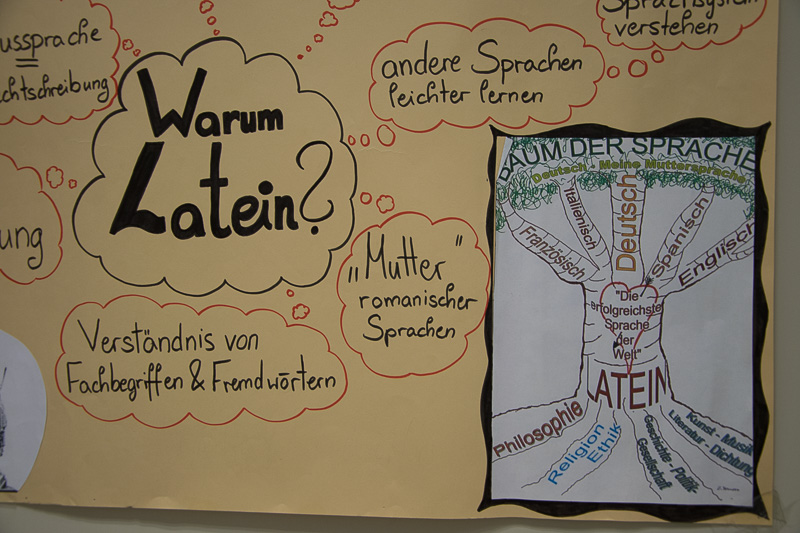 Aussprache
Rechtschreibung
Warum
Latein?
andere Sprachen
leichter lernen
verstehen
„Mutter“
romanischer
Sprachen
Verständnis von
Fachbegriffen & Fremdwörtern
BAUM DER SPRACHE
Deutsch - Meine Muttersprache
Französisch
Italienisch
Deutsch
Spanisch
Englisch
"Die
erfolgreichste
Sprache
der
Welt"
LATEIN
Philosophie
Religion
Ethik
Geschichte - Politik-
Gesellschaft
Kunst - Musik
Literatur - Dichtung